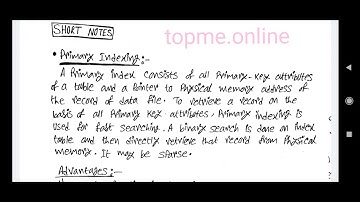 SHORT NOTES
topme.online
• Primary Indexing:-
A Primary index consists of all Primary-Key attributes
of a table and a Pointer to Physical memory address of
the record of data file. To retrieve a record on the
basis of all Primary Key attributes, Primary indexing is
used for fast searching. A binary search is done on index
table and then directly retrieve that record from Physical
memory. It may be sparse.
Advantages:-